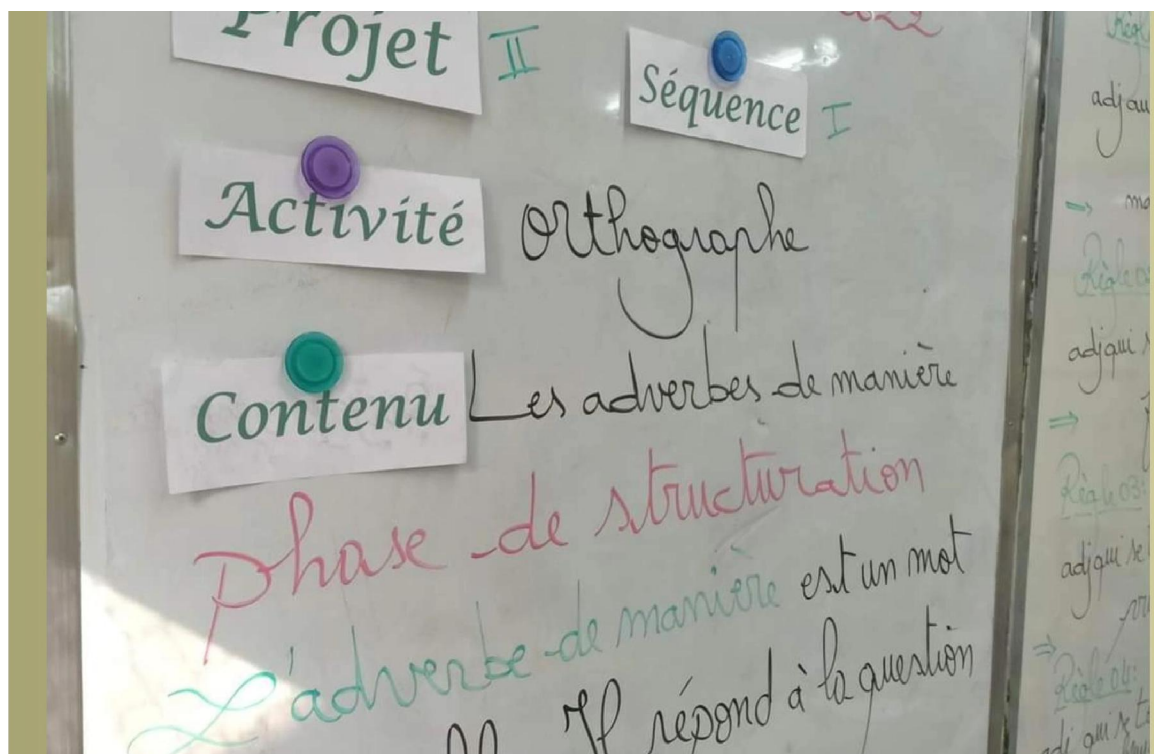 Projet II
Séquence I
Activité Orthographe
Contenu Les adverbes de manière
Phase de structuration
L'adverbe de manière est un mot
Il répond à la question
adj au
adj qui
Règle 03:
adj qui se
Règle 04:
adj qui se